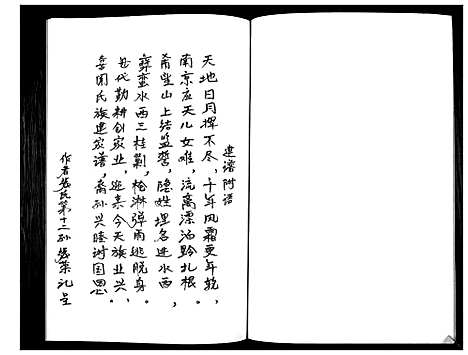 建谱附语
天地日月挥不尽，十年风霜更年乾，
南京应天儿女难，流离漂泊黔扎根。
希望山上结盟誓，隐姓埋名进水西
彝蛮水西三桂剿，枪淋弹雨逃脱身。
世代勤耕创家业，迎来今天族业兴，
氏族建家谱，裔孙兴隆谢国恩。
作者 氏第十二孙 荣礼呈